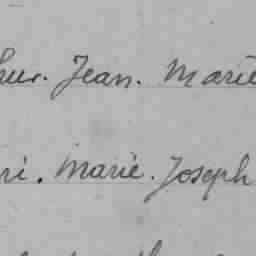 hur. Jean. Marie
ri. Marie. Joseph